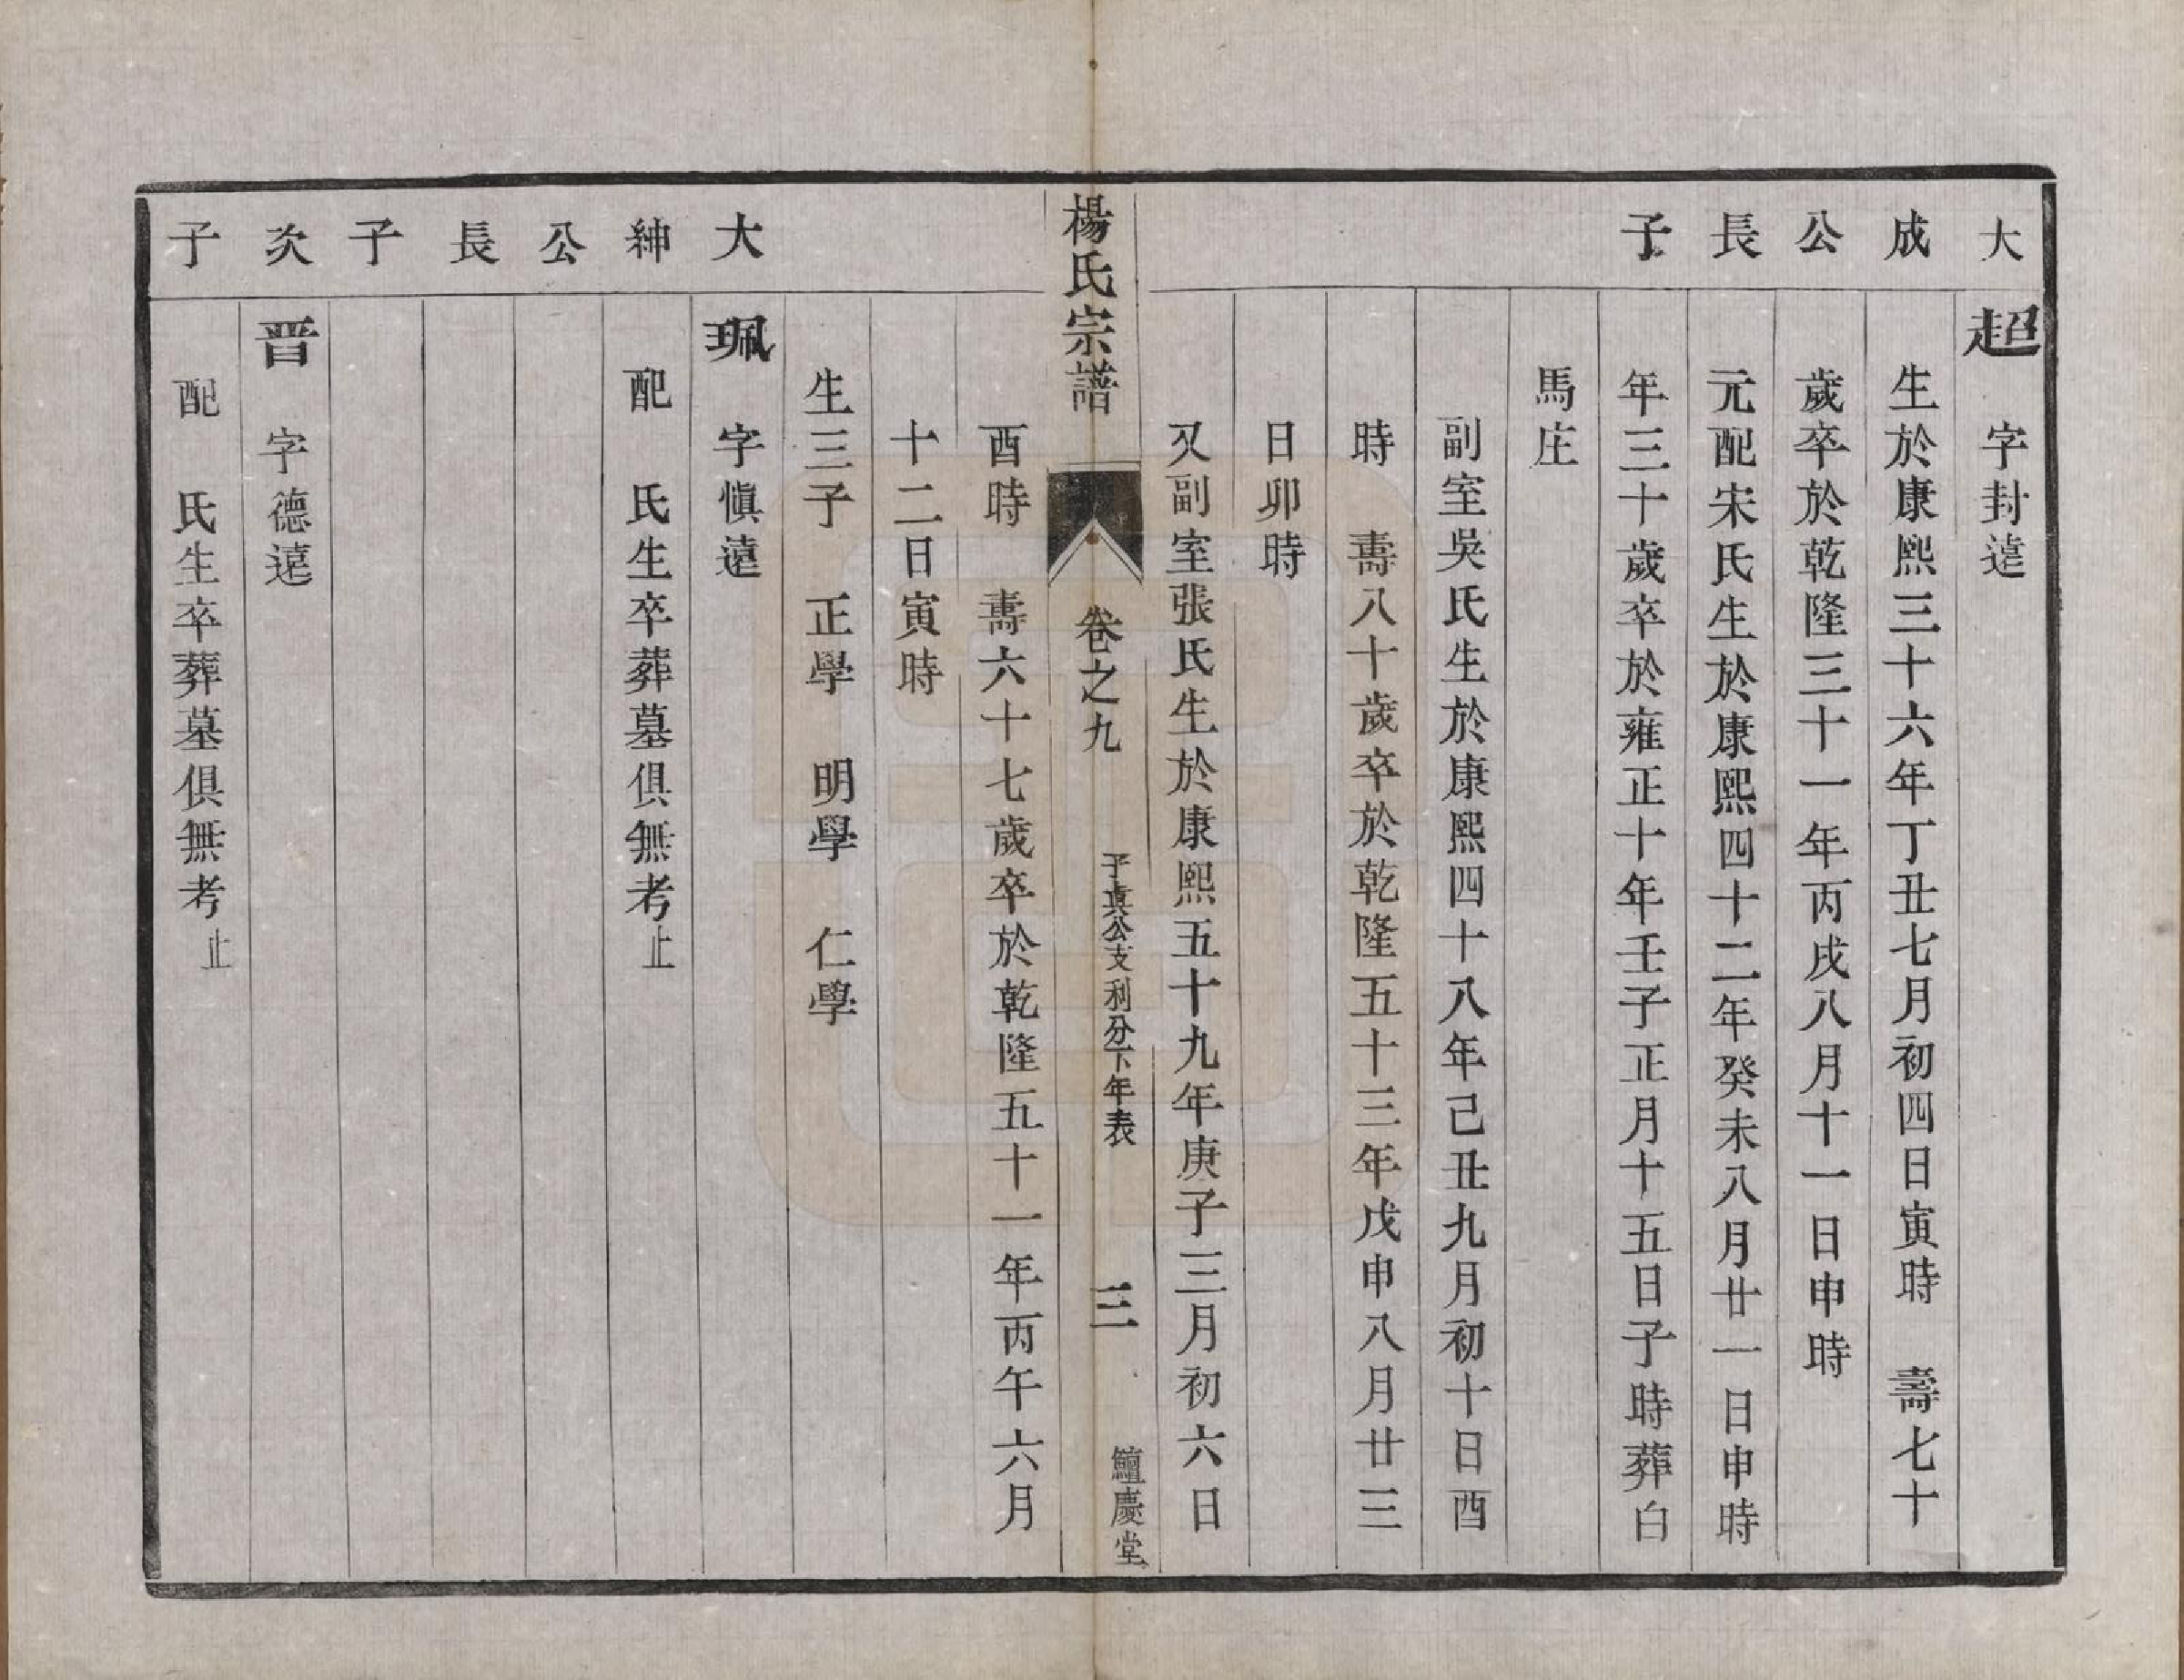 大成公長子
超　字封遠
生於康熙三十六年丁丑七月初四日寅時　壽七十
歲卒於乾隆三十一年丙戌八月十一日申時
元配宋氏生於康熙四十二年癸未八月廿一日申時
年三十歲卒於雍正十年壬子正月十五日子時葬白
馬庄
副室吳氏生於康熙四十八年己丑九月初十日酉
時　壽八十歲卒於乾隆五十三年戊申八月廿三
日卯時
又副室張氏生於康熙五十九年庚子三月初六日
楊氏宗譜　卷之九　子真公支利分下年表　三　鱣慶堂
酉時　壽六十七歲卒於乾隆五十一年丙午六月
十二日寅時
生三子　正學　明學　仁學
大紳公長子
珮　字慎遠
配　氏生卒葬墓俱無考止
次子
晋　字德遠
配　氏生卒葬墓俱無考止